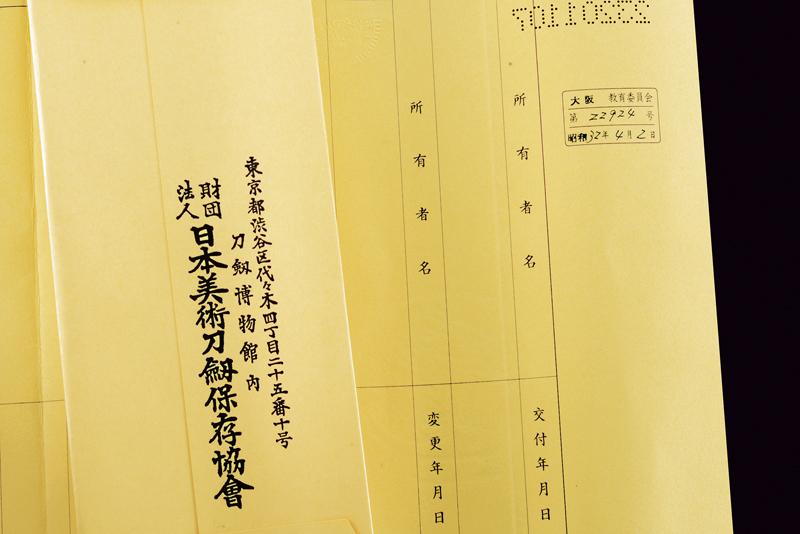 333011107
大阪 教育委員会
第 22924 号
昭和32年4月2日
所有者名
交付年月日
所有者名
変更年月日
東京都渋谷区代々木四丁目二十五番十号
刀剱博物館内
財団法人 日本美術刀剱保存協會